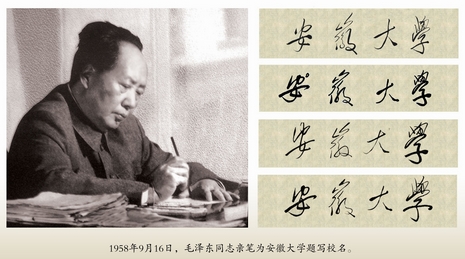 安徽大學
安徽大學
安徽大學
安徽大學
1958年9月16日，毛泽东同志亲笔为安徽大学题写校名。